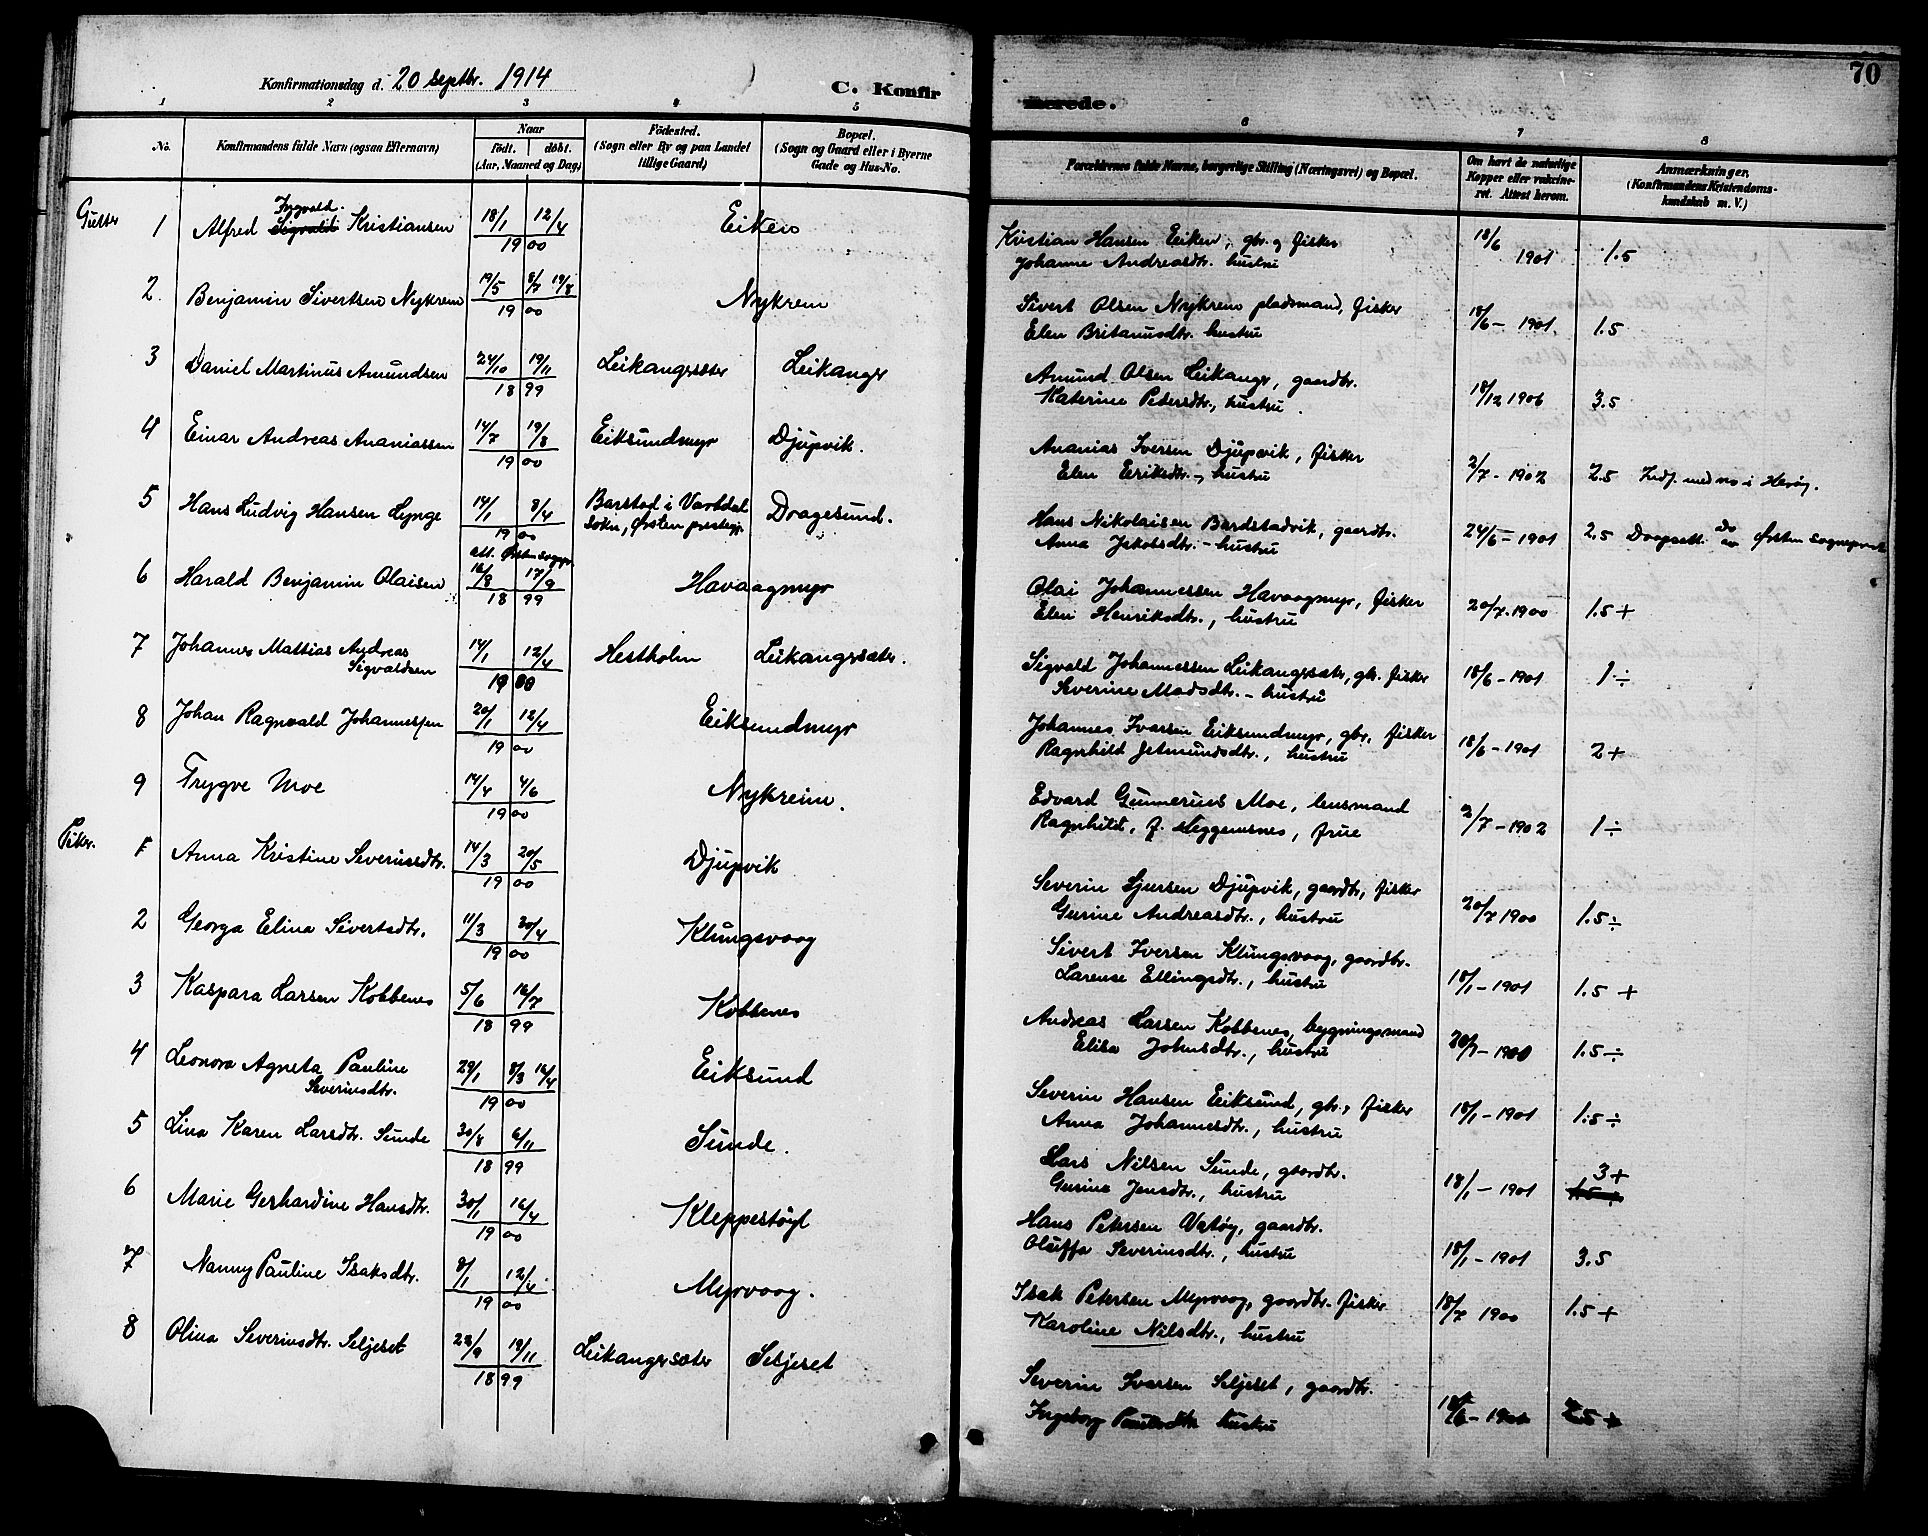 70
Konfirmationsdag d. 20 septbr. 1914
C. Konfirmerede.
1 2 3 4 5 6 7 8
No.
Konfirmandens fulde Navn (ogsaa Efternavn)
Naar
født. døbt.
(Aar, Maaned og Dag)
Födested.
(Sogn eller By og paa Landet
tillige Gaard)
Bopæl.
(Sogn og Gaard eller i Byerne
Gade og Hus-No.
Forældrenes fulde Navne, borgerlige Stilling (Næringsvei) og Bopæl.
Om havt de naturlige
Kopper eller vakcine-
ret. Attest herom.
Anmærkninger.
(Konfirmandens Kristendoms-
kundskab m. V.)
Gutter
1 Alfred Sigvald Ingvald. Kristiansen 18/1 12/4 1900 Eiken
Kristian Hansen Eiken, gbr. og fisker 18/6 1901 1.5
Johanne Andreasdtr. hustru
2. Benjamin Sivertsen Nykrem 19/5 8/7 19/8 1900 Nykrem
Sivert Olsen Nykrem pladsmand, fisker 18/6 - 1901. 1.5
Elen Britanusdtr. hustru
3 Daniel Martinus Amundsen 24/10 19/11 1899 Leikangersæter Leikanger
Amund Olsen Leikanger, gaardbr. 18/12 1906 3.5
Katerine Petersdtr., hustru.
4 Einar Andreas Ananiassen 14/7 19/8 1900 Eiksundmyr Djupvik.
Ananias Iversen Djupvik, fisker 2/7 - 1902 2.5 Indf. med no i Herøy.
Elen Eriksdtr. - hustru
5 Hans Ludvig Hansen Lynge 14/1 8/4 1900 Barstad i Vartdal
sokn, Ørsten prestegj. Dragesund.
att. Ørsten sogepr.
Hans Nikolaisen Bardstadvik, gaardbr. 24/6 - 1901 2.5 Daapsatt. av Ørsten sogneprest
Anna Jakobsdtr. - hustru
6 Harald Benjamin Olaisen 16/8 17/9 1899 Havaagmyr
Olai Johannessen Havaagmyr, fisker 20/7 . 1900 1.5 +
Elen Henriksdtr., hustru
7 Johannes Mattias Andreas
Sigvaldsen 14/1 12/4 1900 Hestholm Leikangersæter.
Sigvald Johannessen Leikangersæter, gbr. fisker 18/6 - 1901 1 ÷
Severine Madsdtr. - hustru
8 Johan Ragnvald Johannessen 20/1 12/4 1900 Eiksundmyr
Johannes Ivarsen Eiksundmyr, gbr., fisker 18/6 - 1901 2 +
Ragnhild Jetmundsdtr., hustru
9 Trygve Moe 14/4 4/6 1900 Nykreim.
Edvard Gunnerius Moe, lensmand 2/7 - 1902 1 ÷
Ragnhild, f. Heggemsnes, frue
Piker.
1 Anna Kristine Severinsdtr. 14/3 20/5 1900 Djupvik
Severin Sjursen Djupvik, gaardbr., fisker 20/7 1900 1.5 ÷
Gurine Andreasdtr., hustru
2 Georga Elina Sivertsdtr. 11/3 20/4 1900 Klungsvaag
Sivert Iversen Klungsvaag, gaardbr. 18/1 - 1901 1.5 +
Larense Ellingsdtr., hustru
3 Kaspara Larsen Kobbenes 5/6 16/7 1899 Kobbenes
Andreas Larsen Kobbenes, bygningsmand 20/7 - 1900 1.5 ÷
Elisa Johnsdtr., hustru
4 Leonora Agneta Pauline
Severinsdtr. 29/1 8/3 16/4 1900 Eiksund
Severin Hansen Eiksund, gbr., fisker 18/1 - 1901 1.5 ÷
Anna Johannesdtr., hustru
5 Lina Karen Larsdtr. Sunde 30/8 6/11 1899 Sunde.
Lars Nilsen Sunde, gaardbr. 18/1 - 1901 3 + 1.5 +
Gurine Jensdtr., hustru
6 Marie Gerhardine Hansdtr. 30/1 16/4 1900 Kleppestøyl
Hans Petersen Vatøy, gaardbr. 18/1 - 1901 3.5
Oluffa Severinsdtr., hustru
7 Nanny Pauline Isaksdtr. 8/1 12/4 1900 Myrvaag.
Isak Petersen Myrvaag, gaardbr. fisker 18/7 1900 1.5 +
Karoline Nilsdtr., hustru
8 Olina Severinsdtr. Seljeset 28/9 19/11 1899 Leikangersæter Seljeset
Severin Ivarsen Seljeset, gaardbr. 18/6 - 1901 2.5 +
Ingeborg Paulsdtr. hustru